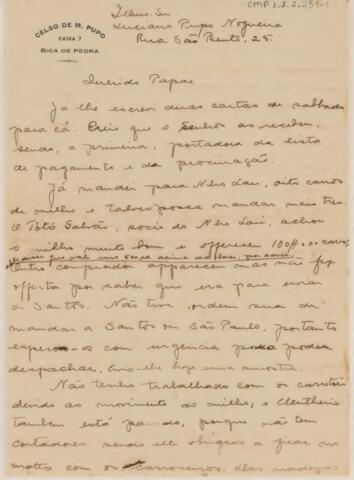 CMP 1.1.2.259-1
CELSO DE M. PUPO
CAIXA 7
BICA DE PEDRA
Illmo. Sr.
Luciano Pupo Nogueira
Rua São Bento, 28.
Querido Papae.
Já lhe escrevi duas cartas de sabbado
para cá. Creio que o Senhor as recebeu,
sendo, a primeira, portadora da lista
de pagamento e da procuração.
Já mandei para Nho Lau, oito carros
de milho e talvez possa mandar mais tres.
O Totó Galvão, socio do Nho Lau, achou
o milho muito bom e offereceu 100$ o carro,
comprador appareceu mas não fez
offerta por saber que era para enviar
a Santos. Não tive ordem sua de
mandar a Santos ou São Paulo, portanto
espero-a com urgencia para poder
despachar. Envio-lhe hoje uma amostra.
Não tenho trabalhado com os carretões
devido ao movimento do milho, o Eleutherio
tambem está parado, porque não tem
cortadores sendo elle obrigado a ficar no
matto com os carroceiros. madeiras